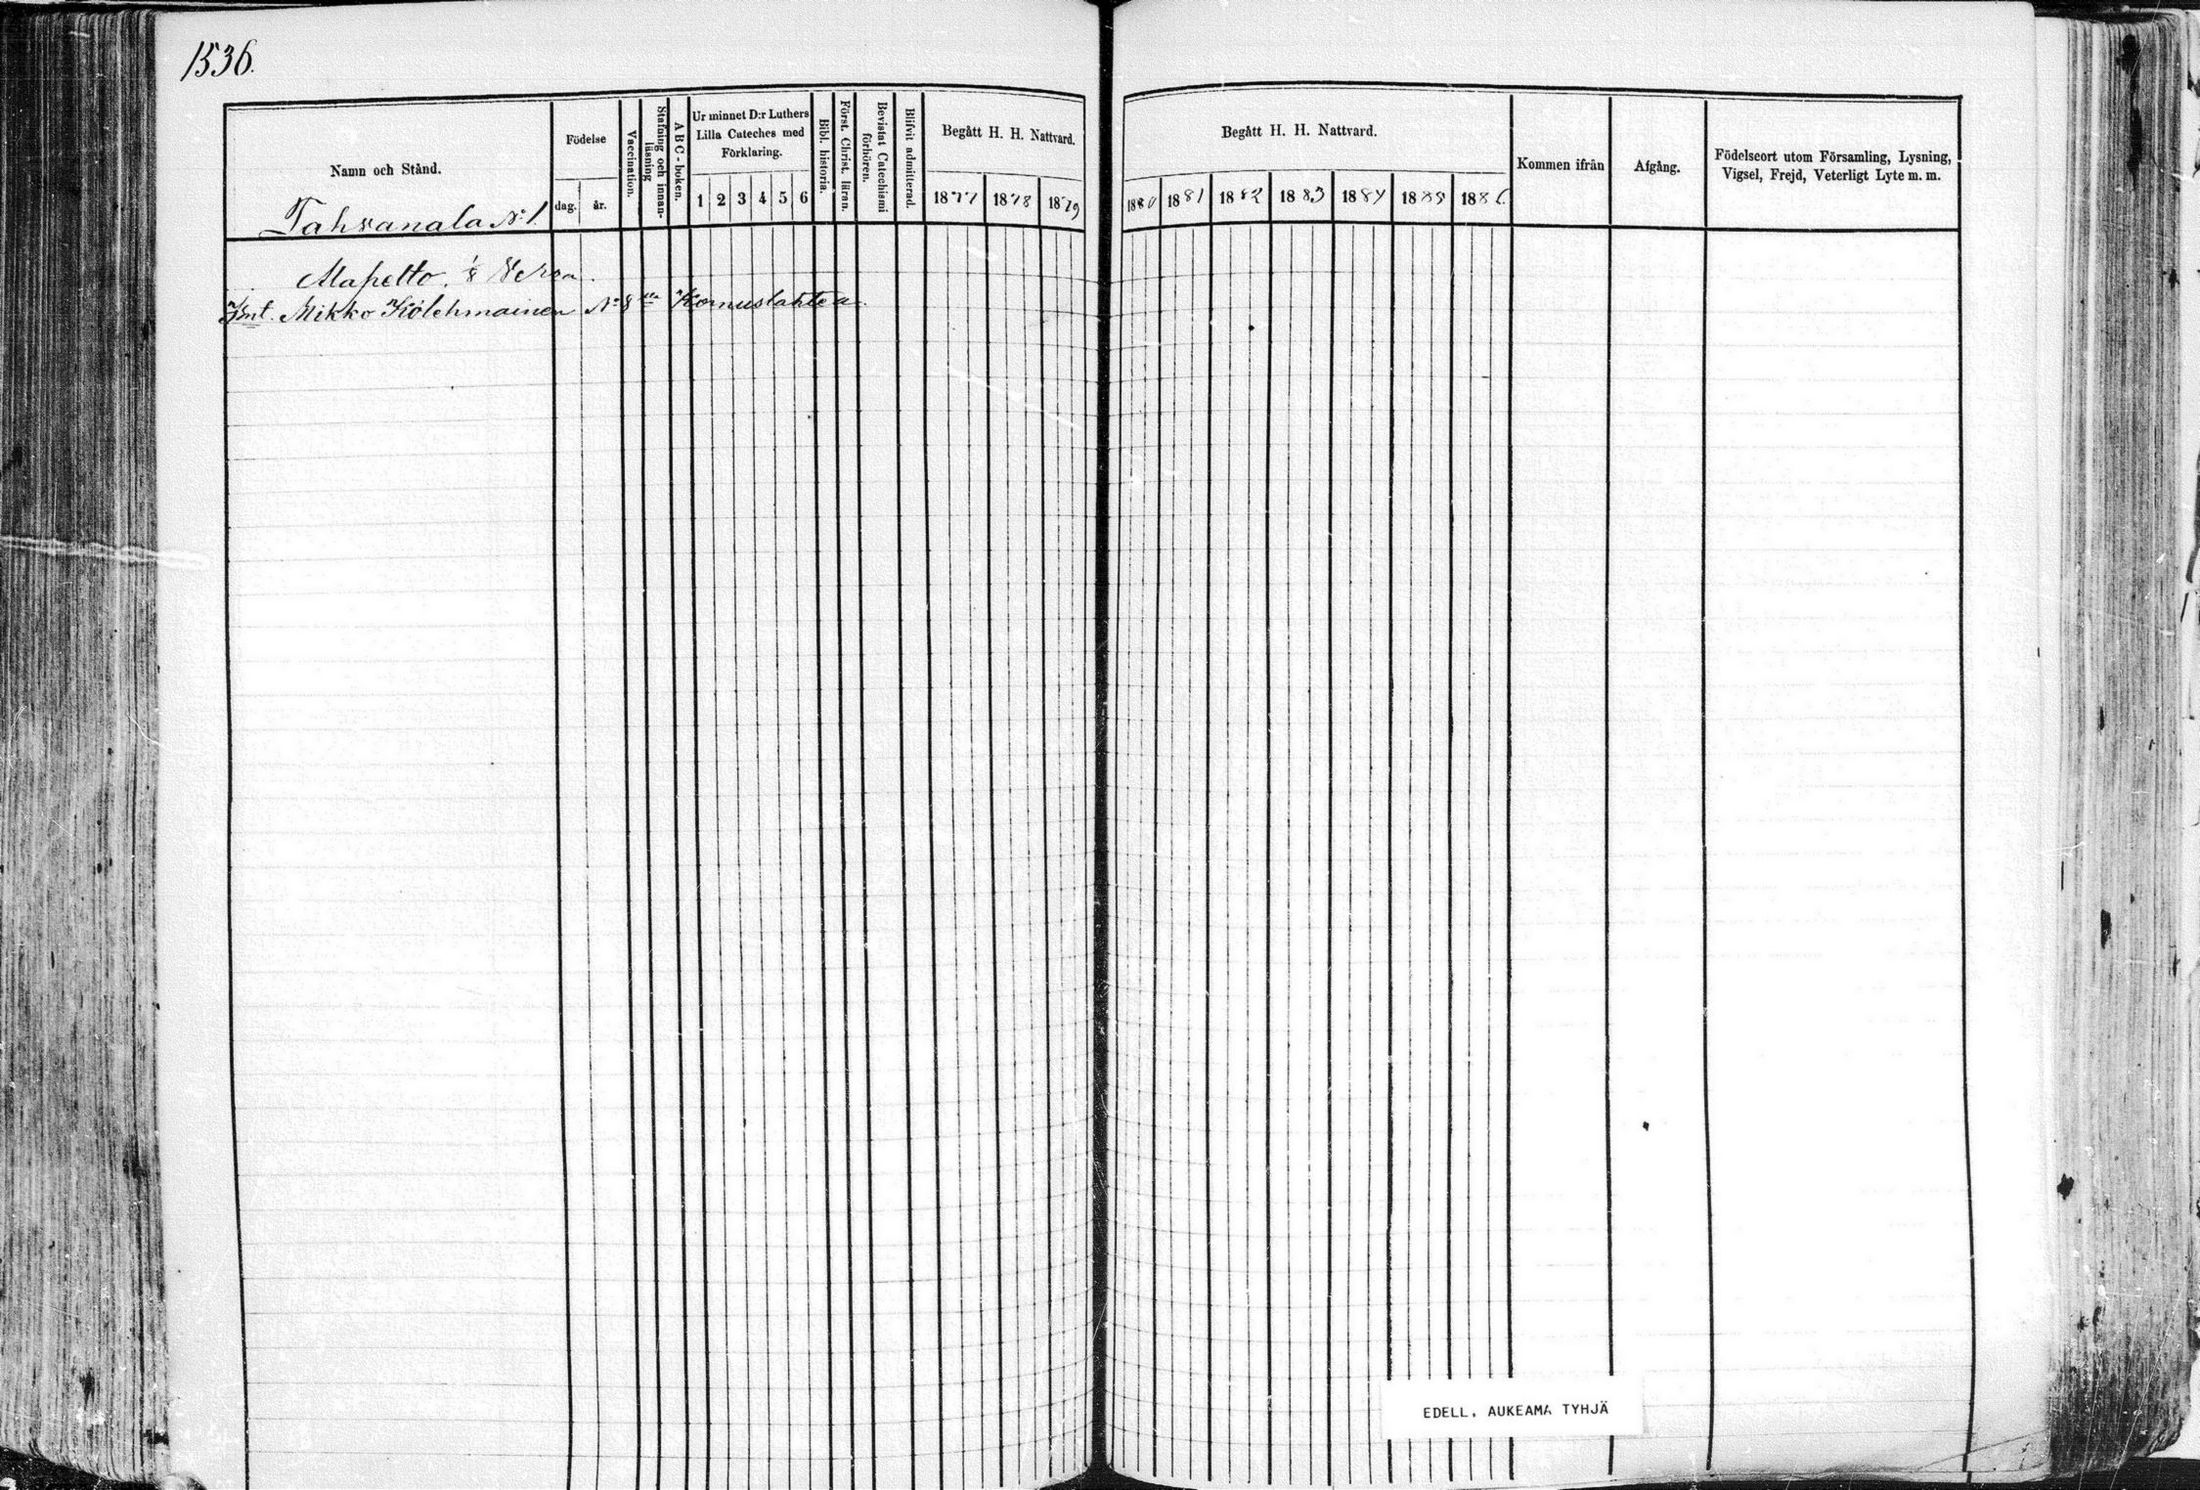 1536.
Namn och Stånd.
Tahvanala № 1.
Födelse
dag. år.
Vaccination.
Stafning och innan-läsning
ABC-boken.
Ur minnet D:r Luthers Lilla Cateches med Förklaring.
1 2 3 4 5 6
Bibl. historia.
Först. Christ. läran.
Bevistat Catechismi förhören.
Blifvit admitterad.
Begått H. H. Nattvard.
1877 1878 1879
Begått H. H. Nattvard.
1880 1881 1882 1883 1884 1885 1886
Kommen ifrån
Afgång.
Födelseort utom Församling, Lysning, Vigsel, Frejd, Veterligt Lyte m. m.
Mapelto. 1/8
Int. Mikko Kolehmainen № 8 Komuslahtea.
EDELL. AUKEAMA TYHJÄ